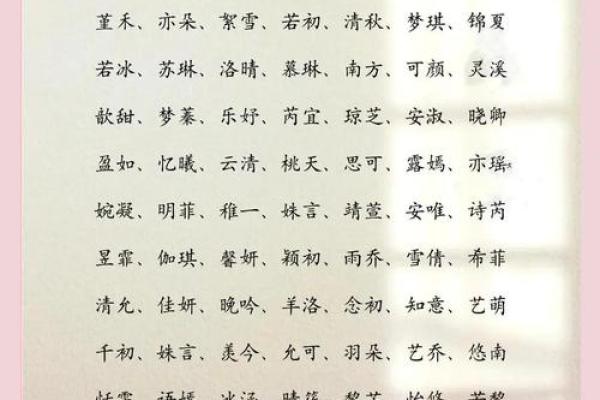 堇禾、亦朵、絮雪、若初、清秋、梦琪、锦夏
若冰、苏琳、洛晴、慕琳、南方、可颜、灵溪
歆甜、梦蓁、乐妤、芮宜、琼芝、安淑、晓卿
盈如、忆曦、云清、桃天、思可、露嫣、亦瑶
婉凝、明菲、稚一、姝言、靖萱、安唯、诗芮
昱霏、伽琪、馨妍、颖初、雨乔、雪倩、希菲
清允、佳妍、晚吟、羊洛、念初、知意、艺萌
千初、姝言、羡今、允可、羽朵、艺乔、悠南